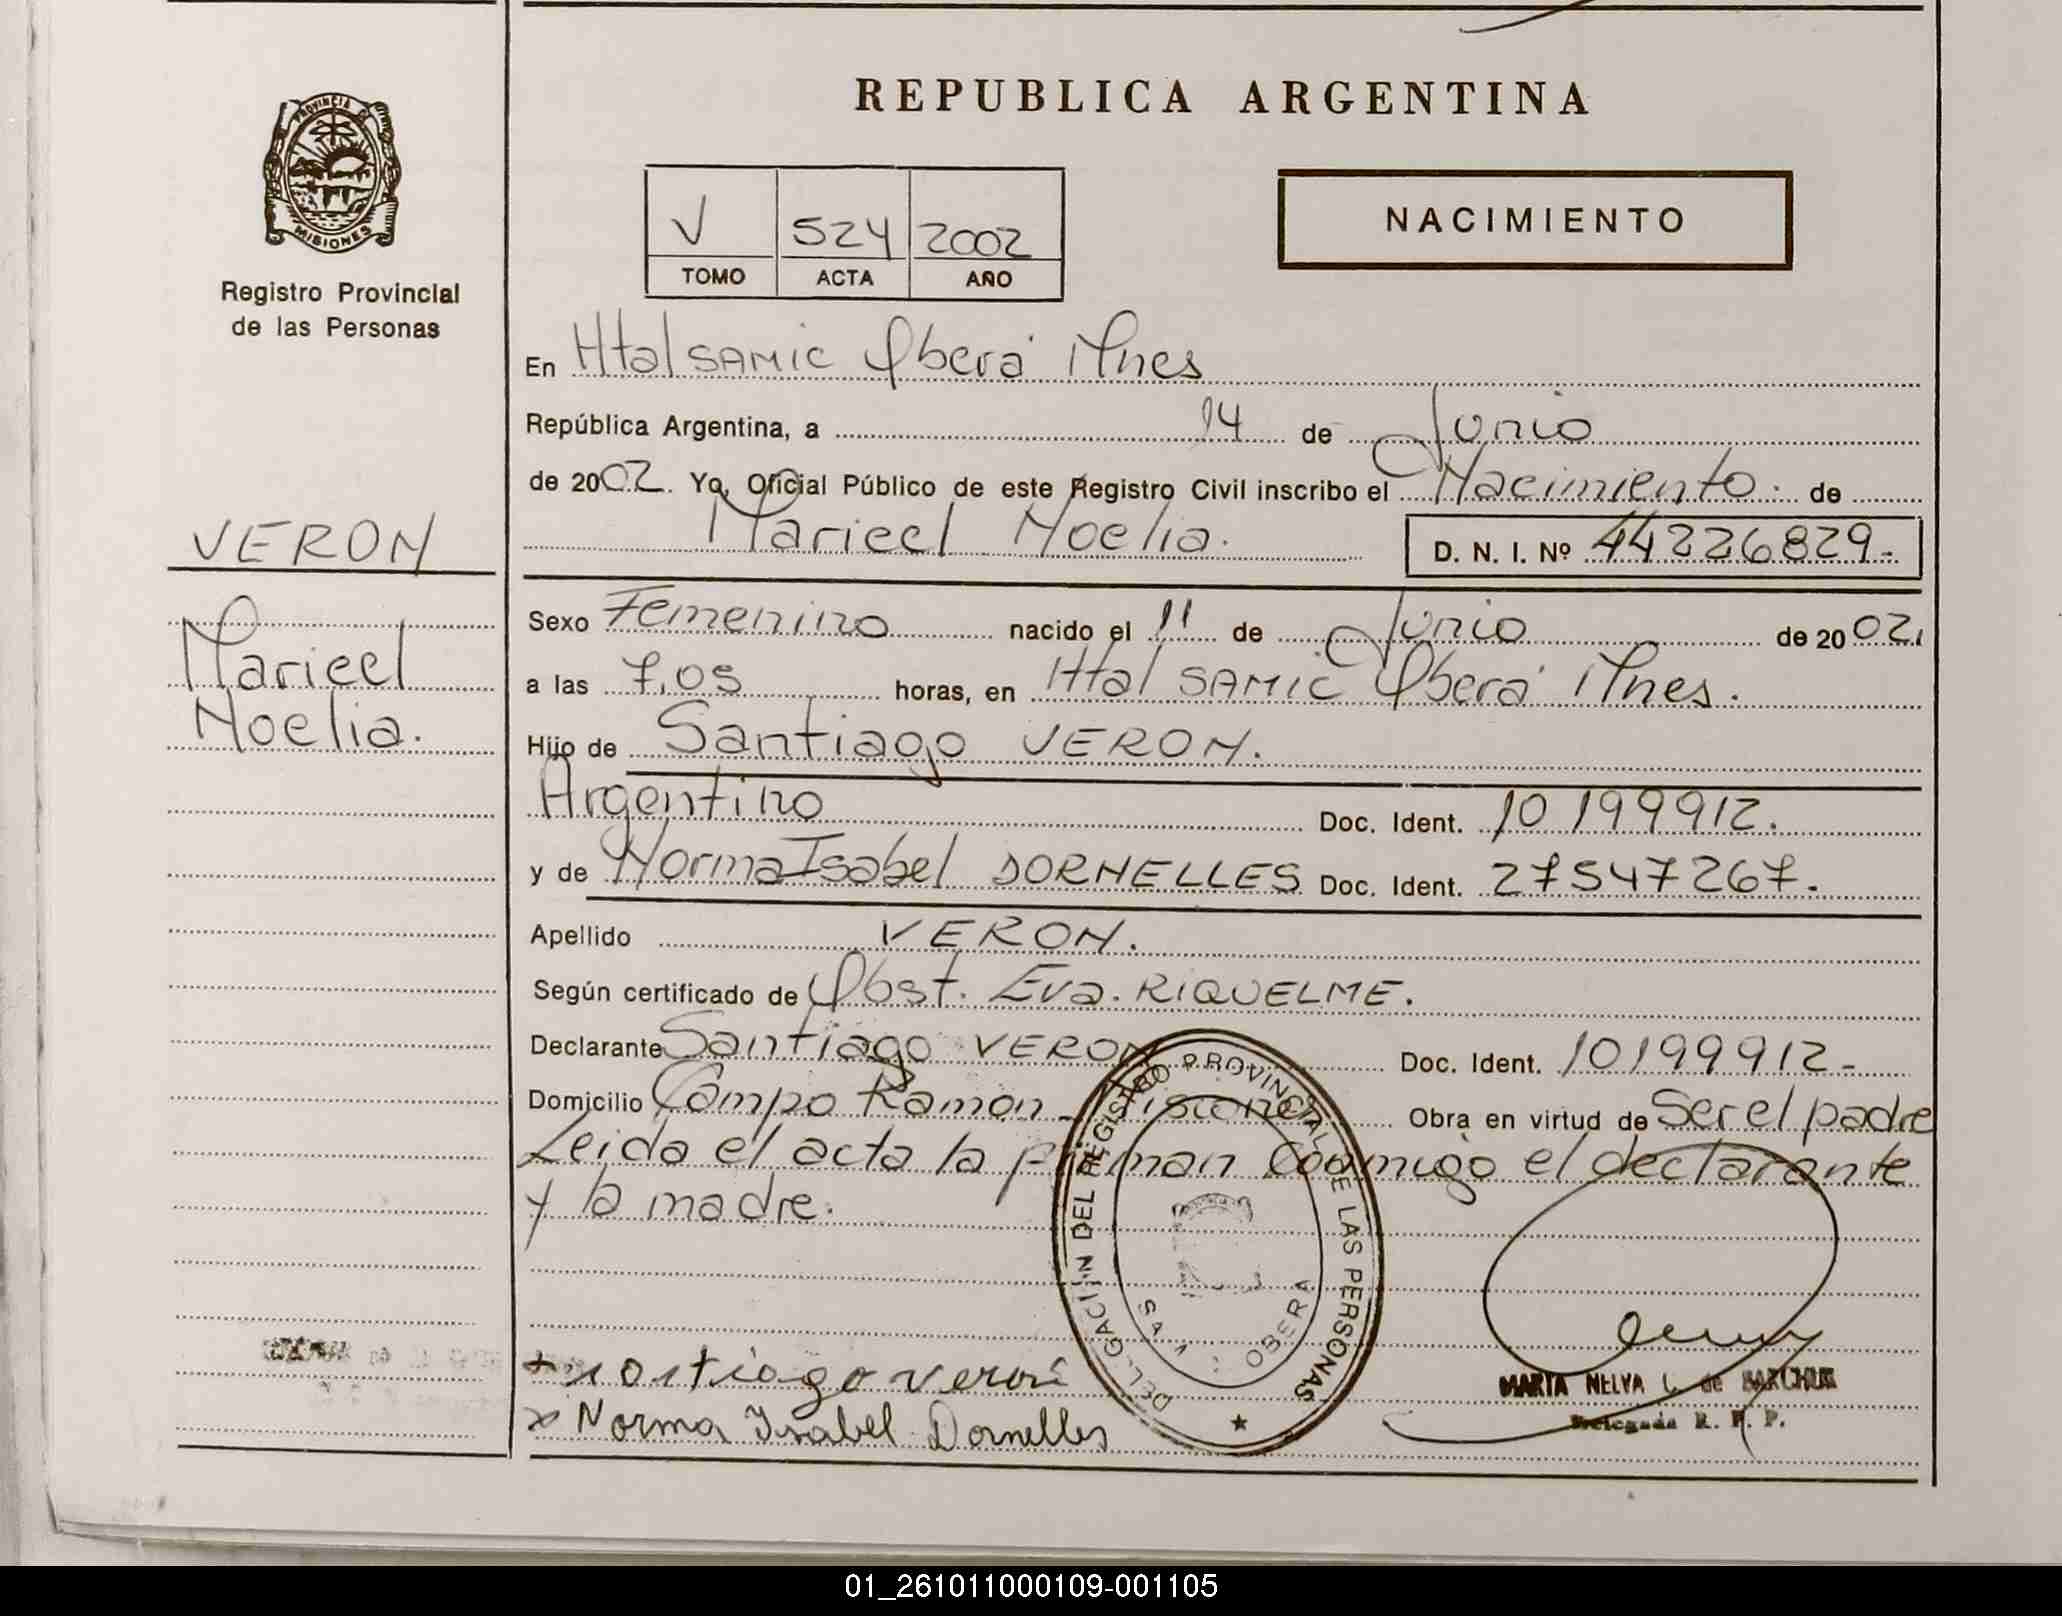 REPUBLICA ARGENTINA
PROVINCIA DE
MISIONES
Registro Provincial
de las Personas
V 524 2002
TOMO ACTA AÑO
NACIMIENTO
En Htal SAMIC Oberá Mnes
República Argentina, a 14 de Junio
de 2002. Yo, Oficial Público de este Registro Civil inscribo el Nacimiento de
Maricel Noelia. D. N. I. Nº 44226829.-
VERON
Maricel
Noelia.
Sexo Femenino nacido el 11 de Junio de 2002.
a las 7,05 horas, en Htal SAMIC Oberá Mnes.
Hijo de Santiago VERON.
Argentino Doc. Ident. 10 199912.
y de Norma Isabel DORNELLES Doc. Ident. 27547267.
Apellido VERON.
Según certificado de Obst. Eva. RIQUELME.
Declarante Santiago VERON Doc. Ident. 10199912-
Domicilio Campo Ramón - Misiones Obra en virtud de Ser el padre
Leida el acta la firman conmigo el declarante
y la madre.
DELEGACION DEL REGISTRO PROVINCIAL DE LAS PERSONAS
OBERA
+ santiago veron
x Norma Isabel Dornelles
MARTA NELVA de
Delegada R. P. P.
01_261011000109-001105